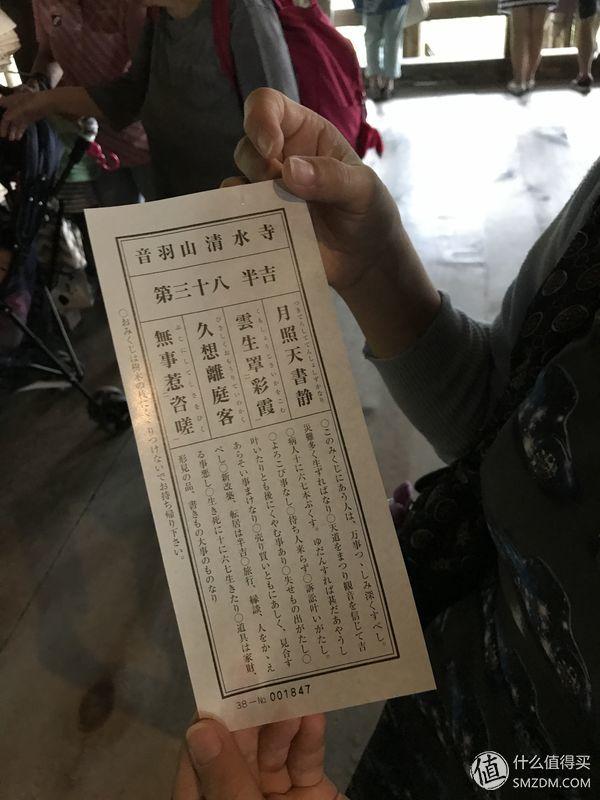 音羽山清水寺
第三十八 半吉
月照天書静
雲生罩彩霞
久想離庭客
無事惹咨嗟
○このみくじにあう人は、万事つゝしみ深くすべし。
災難多く生ずればなり○天道をまつり観音を信じて吉
○病人十に六七本ぶくす。ゆだんすれば甚だあやうし
○よろこび事なし○待ち人来らず○訴訟叶いがたし。
叶いたりとも後にくやむ事あり○失せもの出がたし○
あらそい事まけなり○売り買いともにあしく、見合す
べし○新改築、転居は半吉○旅行、縁談、人をかゝえ
る事悪し○生き死に十に六七生きたり○道具は家財、
形見の品、書きもの大事のものなり
○おみくじは樹木の枝にくくりつけないでお持ち帰り下さい。
38-No 001847
值 什么值得买
SMZDM.COM